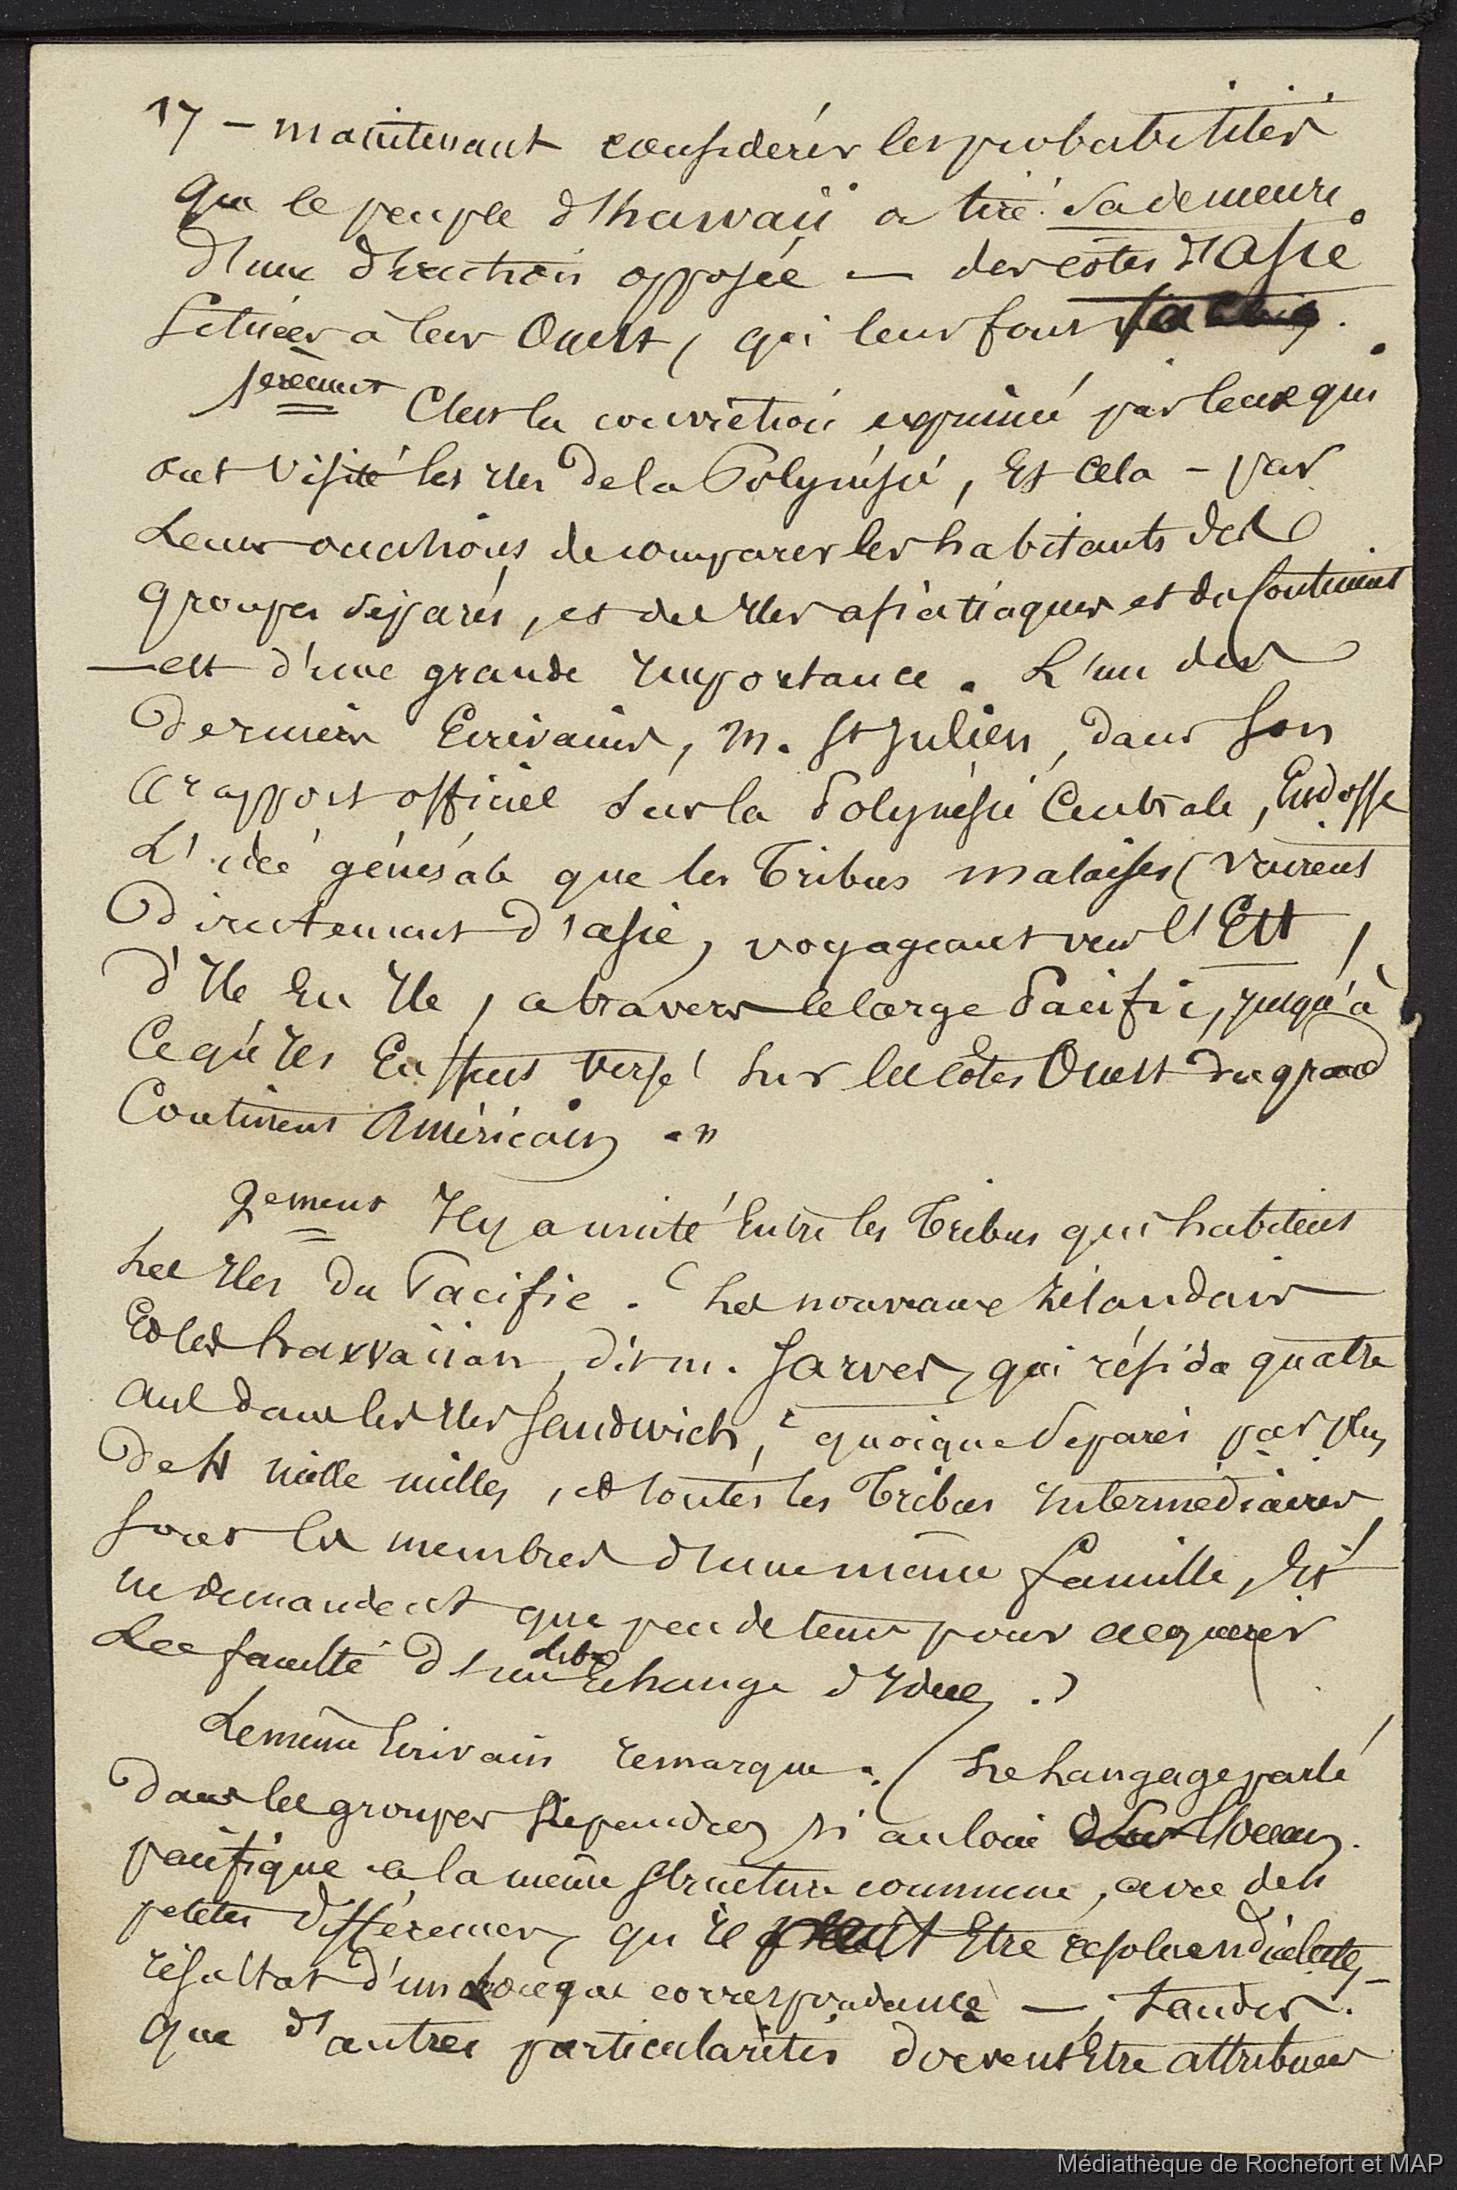 17 - maintenant considérér les probabilités
que le peuple d'hawaii a tiré sa demeure
d'une direction opposée — des côtes d'Asie
situées à leur Ouest, qui leur font
1erement C'est la conviction exprimée par ceux qui
ont visité les Iles de la Polynésie, Et cela - par
Leurs occasions de comparer les habitants des
groupes séparés, et des Iles asiatiaques et du Continent
— est d'une grande Importance. L'un des
derniers Ecrivains, M. St Julien, dans son
rapport officiel sur la Polynésie Centrale, Endosse
L'idée générale que les Tribus malaises (vinrent
Directement d'asie, voyageant vers l'Est,
d'Ile En Ile, a travers le large Pacific, jusqu'à
Ce qu'Iles Eussent versé sur les côtes Ouest du grand
Continent Américain ."
2ement Il y a unité Entre les Tribus qui habitent
Les Iles du Pacific. "Les nouveaux Zélandais
Et les hawaiian, dit m. Jarves, qui résida quatre
ans dans les Iles Sandwich, quoique séparés par plus
de 4 mille milles, et toutes les Tribus Intermédiaires,
sont les membres d'une même famille, Et
ne demandent que peu de tems pour acquerir
Les faculté d'un libre Echange d'Idées ."
Le même Ecrivain remarque. (Le Langage parlé
dans les groupes Répandus si au loin l'Ocean
pacifique a la même structure commune, avec des
petites différences, qu'Il peut Etre resolu en dialectes,
résultat d'une correspondance —, tandis
que d'autres particularités doevent Etre attribuees